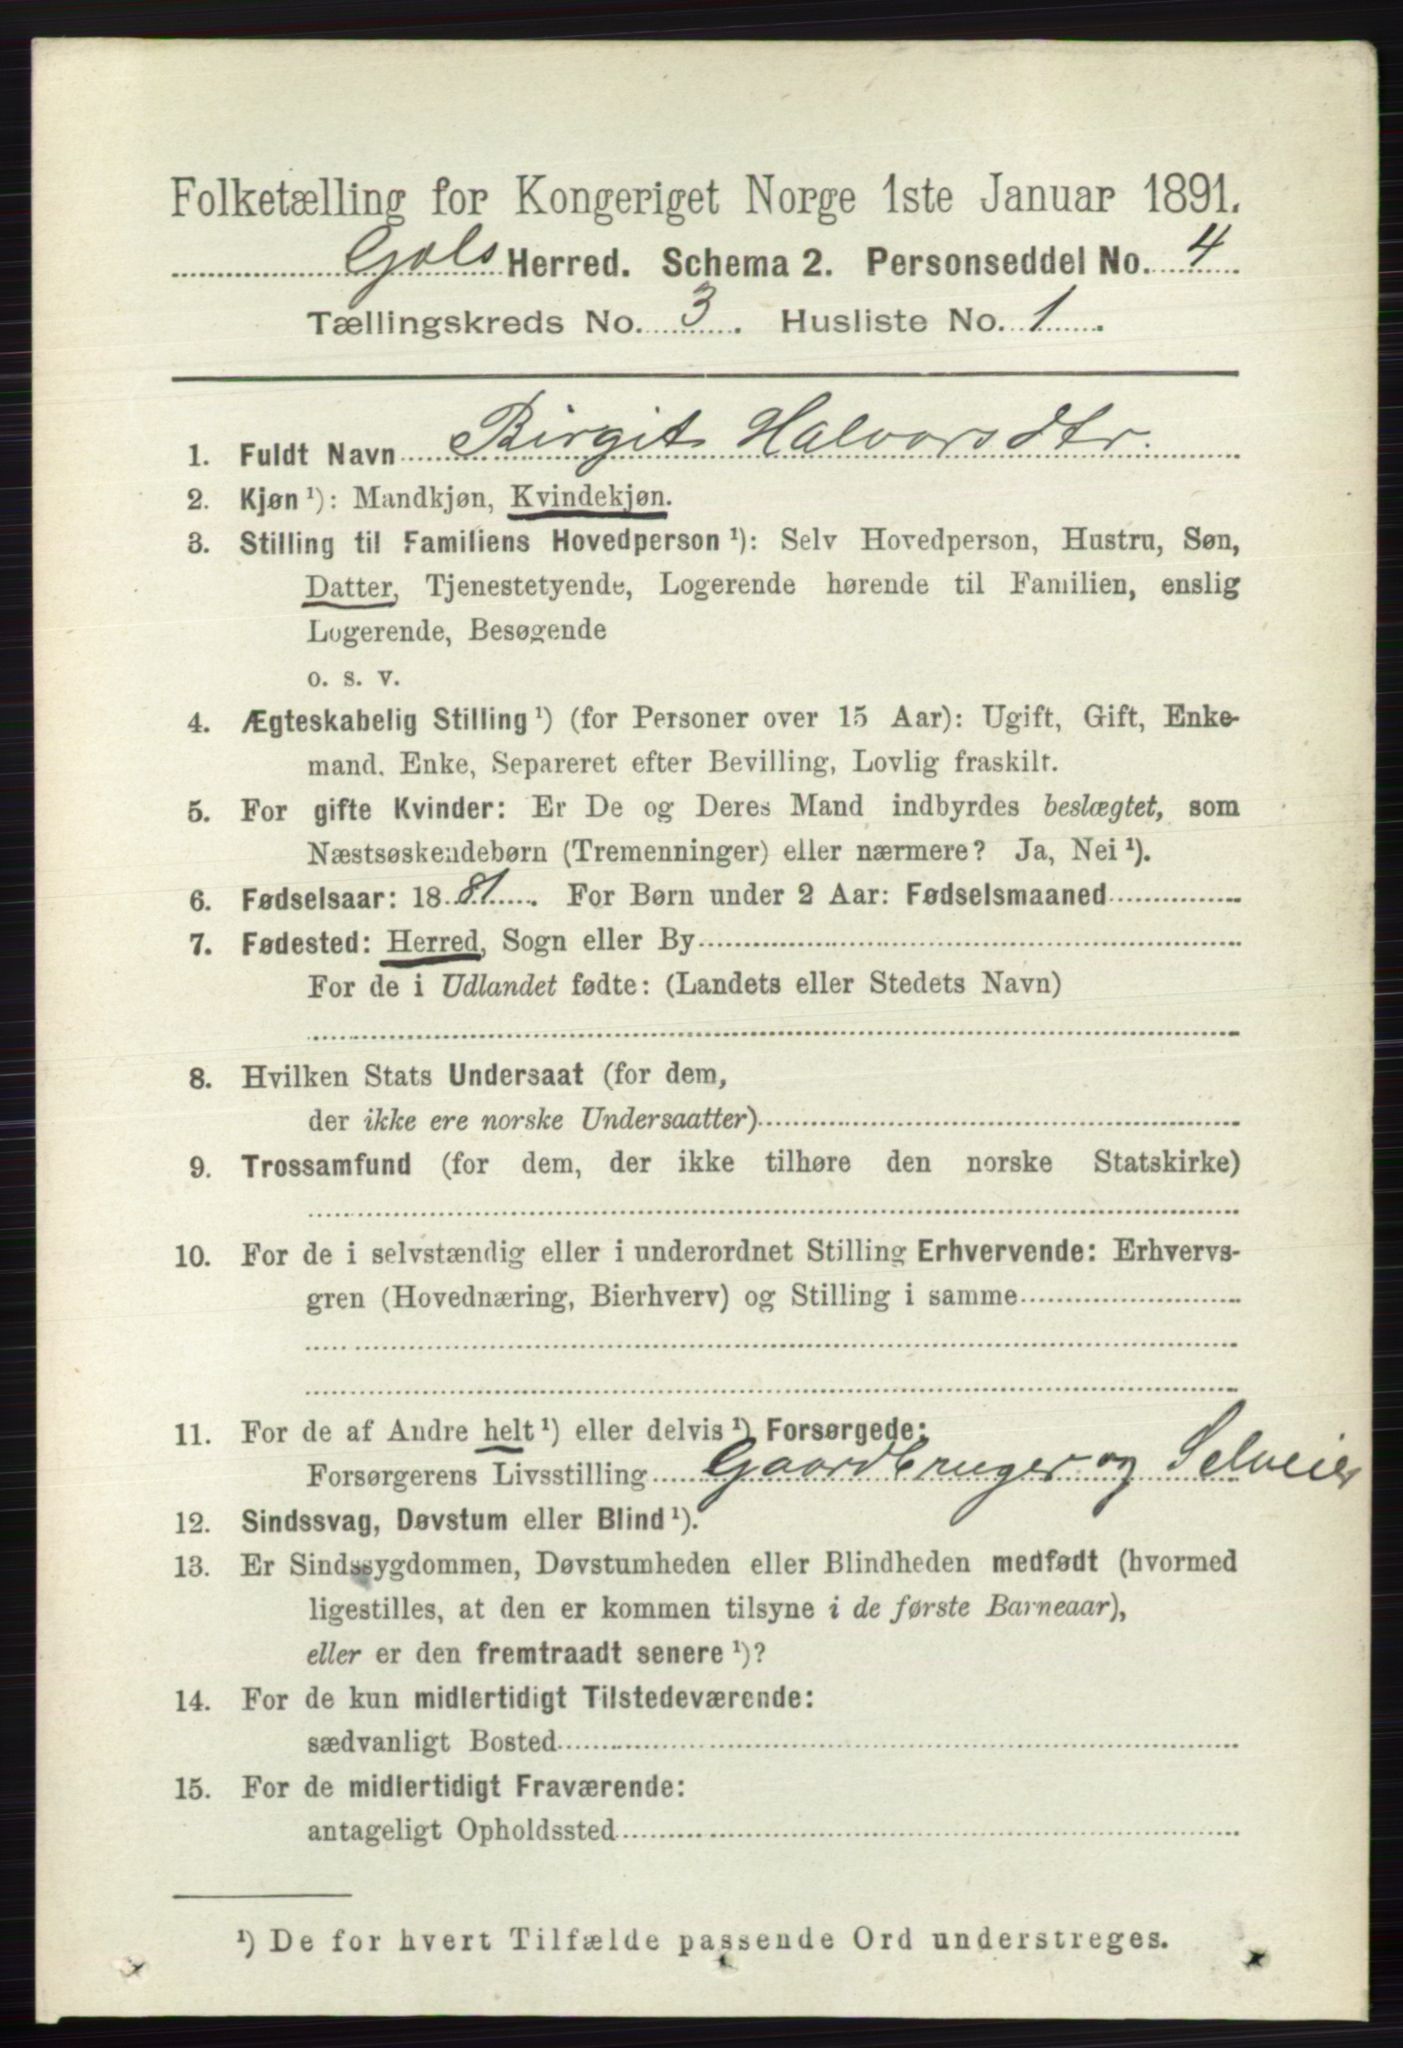 Folketælling for Kongeriget Norge 1ste Januar 1891.
Gols Herred. Schema 2. Personseddel No. 4
Tællingskreds No. 3. Husliste No. 1.
1. Fuldt Navn Birgit Halvorsdtr.
2. Kjøn ¹): Mandkjøn, Kvindekjøn.
3. Stilling til Familiens Hovedperson ¹): Selv Hovedperson, Hustru, Søn,
Datter, Tjenestetyende, Logerende hørende til Familien, enslig
Logerende, Besøgende
o. s. v.
4. Ægteskabelig Stilling ¹) (for Personer over 15 Aar): Ugift, Gift, Enke-
mand, Enke, Separeret efter Bevilling, Lovlig fraskilt.
5. For gifte Kvinder: Er De og Deres Mand indbyrdes beslægtet, som
Næstsøskendebørn (Tremenninger) eller nærmere? Ja, Nei ¹).
6. Fødselsaar: 1881. For Børn under 2 Aar: Fødselsmaaned
7. Fødested: Herred, Sogn eller By
For de i Udlandet fødte: (Landets eller Stedets Navn)
8. Hvilken Stats Undersaat (for dem,
der ikke ere norske Undersaatter)
9. Trossamfund (for dem, der ikke tilhøre den norske Statskirke)
10. For de i selvstændig eller i underordnet Stilling Erhvervende: Erhvervs-
gren (Hovednæring, Bierhverv) og Stilling i samme
11. For de af Andre helt ¹) eller delvis ¹) Forsørgede:
Forsørgerens Livsstilling Gaardbruger og Selveier
12. Sindssvag, Døvstum eller Blind ¹).
13. Er Sindssygdommen, Døvstumheden eller Blindheden medfødt (hvormed
ligestilles, at den er kommen tilsyne i de første Barneaar),
eller er den fremtraadt senere ¹)?
14. For de kun midlertidigt Tilstedeværende:
sædvanligt Bosted
15. For de midlertidigt Fraværende:
antageligt Opholdssted
¹) De for hvert Tilfælde passende Ord understreges.